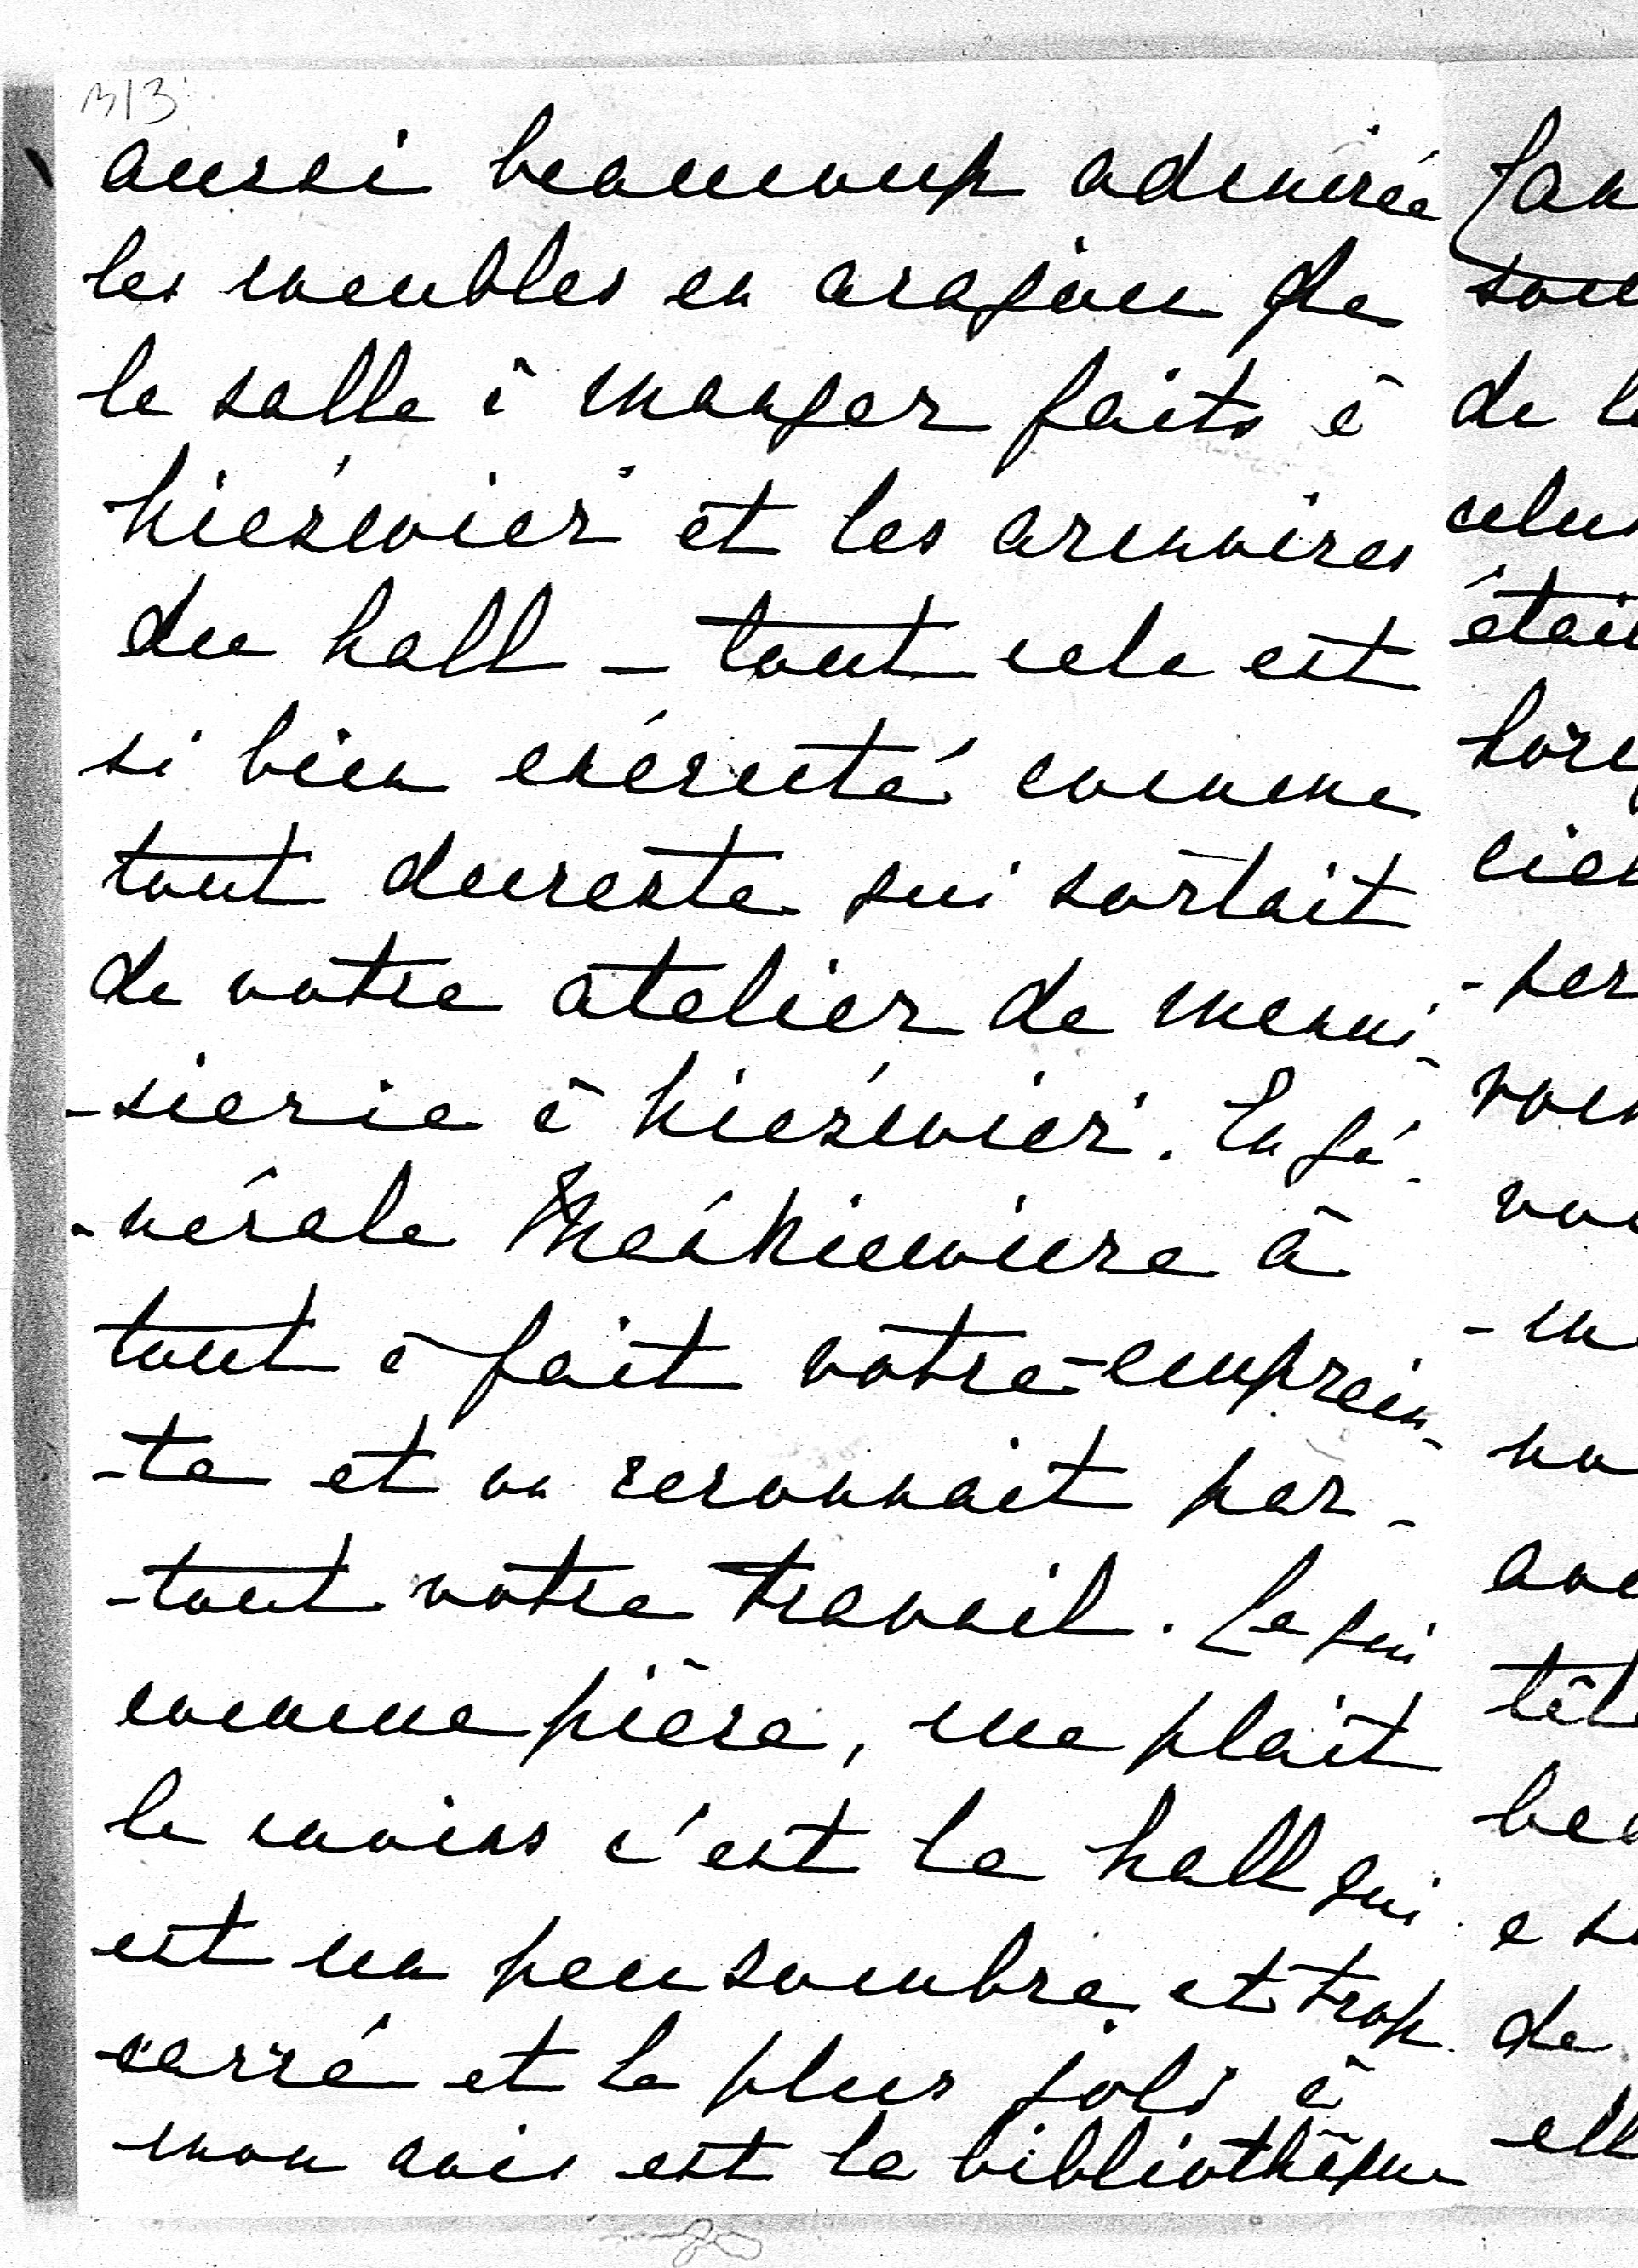 313
aussi beaucoup admirée
les meubles en acajou de
la salle à manger faits à
Nieśwież et les armoires
du hall – tout cela est
si bien exécuté comme
tout dureste qui sortait
de votre atelier de menui-
-sierie à Nieśwież. En gé-
-nérale Mańkiewicze a
tout à fait votre emprein-
-te et on reconnait par-
-tout votre travail. Ce qui
comme pièce, me plait
le moins c'est le hall qui
est un peu sombre et trop
carré et le plus joli à
mon avis est la bibliothèque